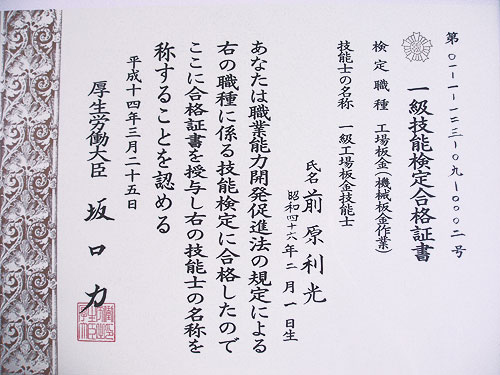 第〇一-一-一二三-〇九-〇〇〇二号
一級技能検定合格証書
検定職種 工場板金(機械板金作業)
技能士の名称 一級工場板金技能士
氏名 前原利光
昭和四十六年二月一日生
あなたは職業能力開発促進法の規定による
右の職種に係る技能検定に合格したので
ここに合格証書を授与し右の技能士の名称を
称することを認める
平成十四年三月二十五日
厚生労働大臣 坂口力